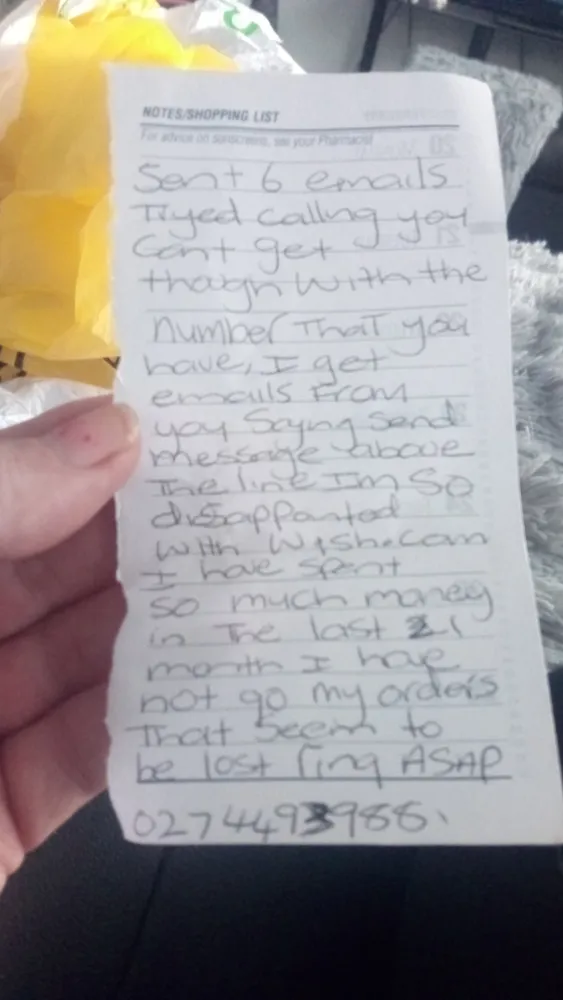 NOTES/SHOPPING LIST
For advice on sunscreens, see your Pharmacist
Sent 6 emails
Tryed calling you
Cant get
thaogh with the
number That you
have, I get
emails From
you Sayng Send
message above
The line Im So
dissappanted
with Wish.com
I have spent
so much money
in The last 1
month I have
not go my orders
That Seem to
be lost ring ASAP
0274493988.